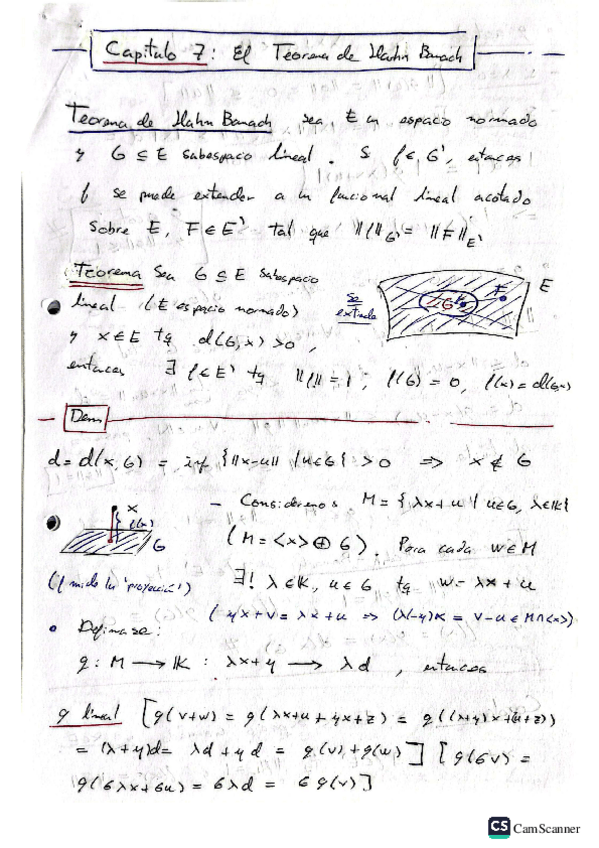 Capitulo 7: El Teorema de Hahn Banach
Teorema de Hahn Banach sea E un espacio normado
y G ⊆ E subespacio lineal. Si f ∈ G', entonces
f se puede extender a un funcional lineal acotado
sobre E, F ∈ E' tal que ||f||_G' = ||F||_E'
Teorema Sea G ⊆ E subespacio
lineal (E espacio normado)
y x ∈ E tq d(G,x) > 0,
entonces ∃ f ∈ E' tq ||f|| = 1, f(G) = 0, f(x) = d(G,x)
se extiende
G
F
E
Dem
d = d(x,G) = inf {||x-u|| / u∈G} > 0 ⇒ x ∉ G
- Consideremos M = {λx+u / u∈G, λ∈K}
x
f(x)
G
(M = <x> ⊕ G). Para cada w∈M
(f mide la 'proyección')
∃! λ ∈ K, u ∈ G tq w = λx + u
(yx + v = λx + u ⇒ (λ-y)x = v-u ∈ M∩<x>)
• Defimase:
g: M → K : λx+y → λd, entonces
g lineal [g(v+w) = g(λx+u+yx+z) = g((λ+y)x+(u+z))
= (λ+y)d = λd + yd = g(v)+g(w)] [g(6v) =
g(6λx+6u) = 6λd = 6g(v)]
CS CamScanner